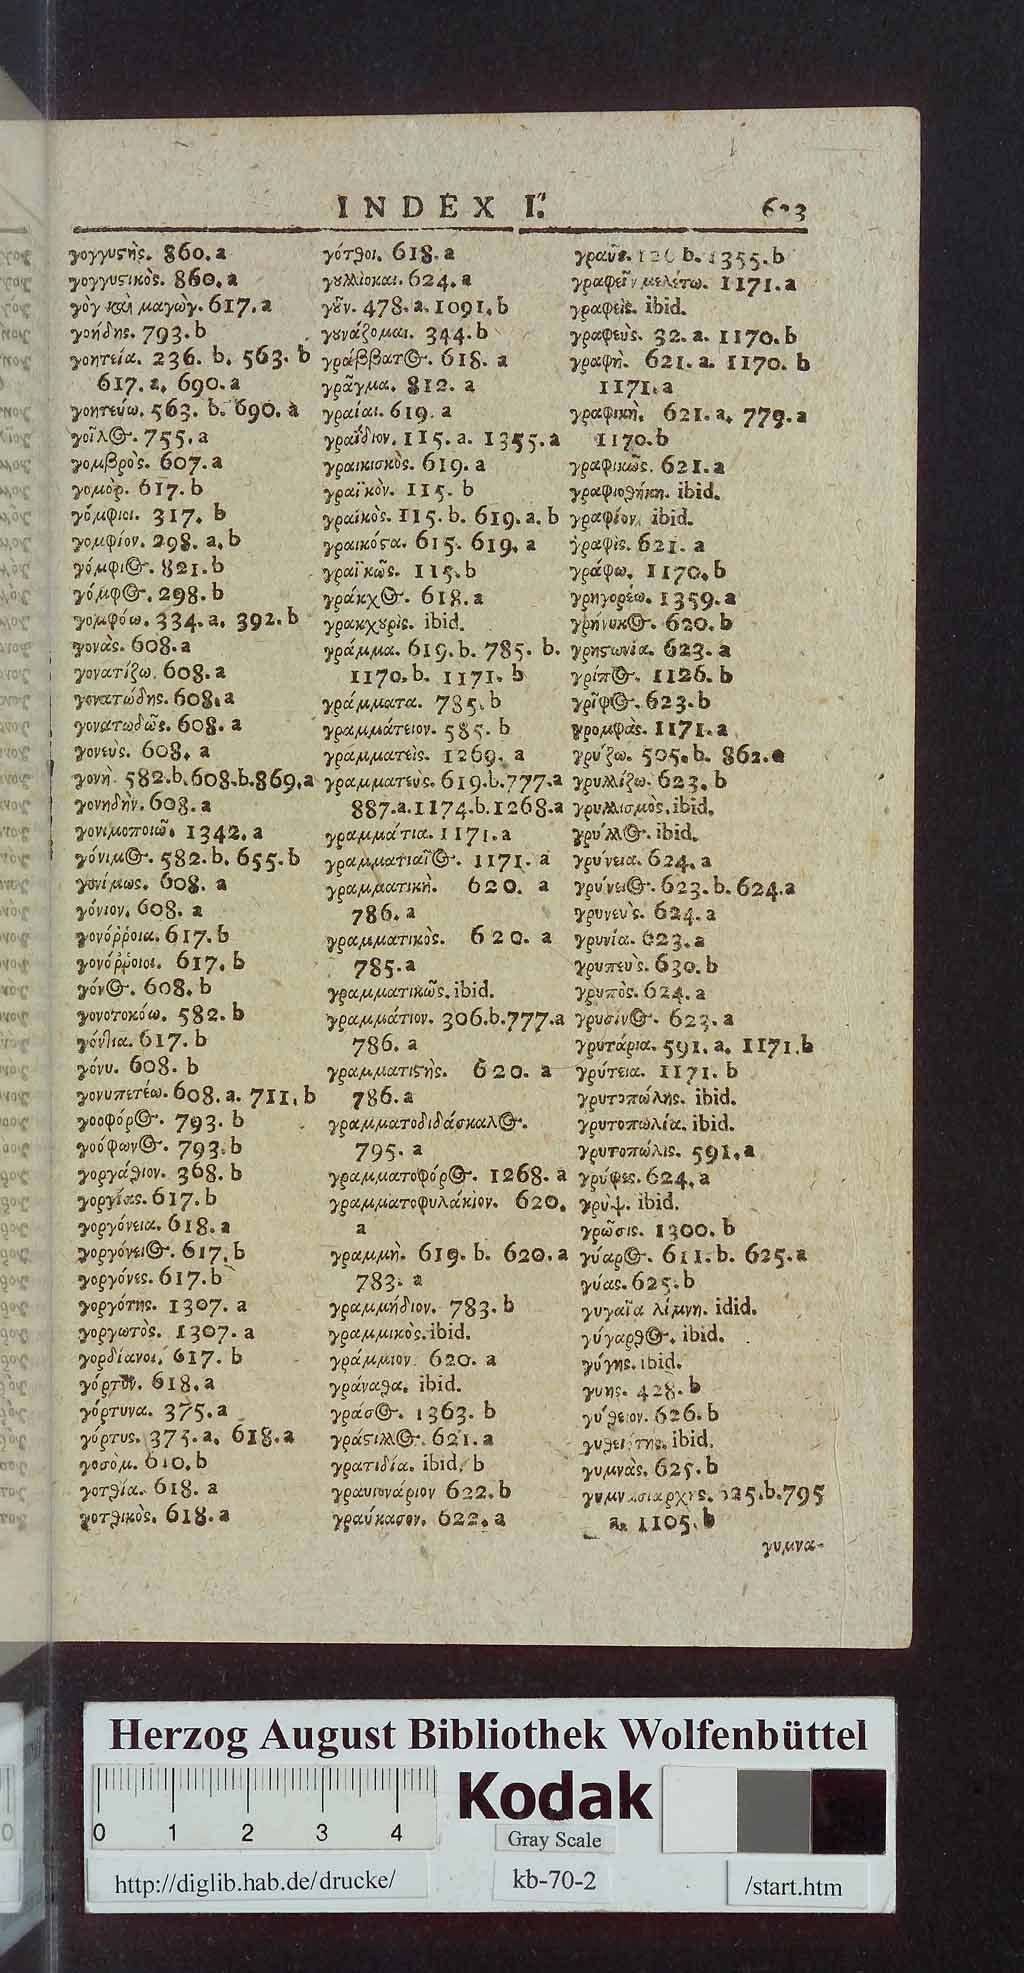 INDEX I.
γογγυστὴς. 860.a
γογγυστικὸς. 860.a
γὸγ καὶ μαγὼγ. 617.a
γοήδης. 793.b
γοητεία. 236. b. 563. b
617.a. 690.a
γοητεύω. 563. b. 690. a
γοῖλος. 755.a
γομβρὸς. 607.a
γομὸρ. 617.b
γόμφιοι. 317. b
γομφίον. 298. a.b
γόμφιος. 821.b
γόμφος. 298.b
γομφόω. 334.a. 392.b
γονὰς. 608.a
γονατίζω. 608.a
γονατώδης. 608.a
γονατωδῶς. 608. a
γονεὺς. 608. a
γονὴ. 582.b.608.b.869.a
γονηδὴν. 608.a
γονιμοποιῶ. 1342.a
γόνιμος. 582.b. 655.b
γονίμως. 608. a
γόνιον. 608. a
γονόῤῥοια. 617.b
γονόῤῥοιοι. 617. b
γόνος. 608. b
γονοτοκόω. 582. b
γόνθια. 617. b
γόνυ. 608. b
γονυπετέω. 608. a. 711. b
γοοφόρος. 793. b
γοόφωνος. 793.b
γοργάθιον. 368. b
γοργίας. 617.b
γοργόνεια. 618. a
γοργόνειος. 617.b
γοργόνες. 617.b
γοργότης. 1307. a
γοργωτὸς. 1307. a
γορδίανοι. 617. b
γόρτυν. 618.a
γόρτυνα. 375.a
γόρτυς. 375.a. 618.a
γοσὸμ. 610.b
γοτθία. 618. a
γοτθικὸς. 618.a
γότθοι. 618.a
γουλλιόκαι. 624.a
γοῦν. 478.a. 1091.b
γουνάζομαι. 344.b
γράββατος. 618. a
γρᾶγμα. 812. a
γραίαι. 619. a
γραΐδιον. 115. a. 1355.a
γραικισκὸς. 619. a
γραϊκὸν. 115. b
γραϊκὸς. 115. b. 619. a. b
γραικόστα. 615. 619. a
γραϊκῶς. 115.b
γράκχος. 618.a
γρακχουρὶς. ibid.
γράμμα. 619.b. 785. b.
1170.b. 1171. b
γράμματα. 785.b
γραμμάτειον. 585. b
γράμματεὶς. 1269. a
γραμματεὺς. 619.b.777.a
887.a.1174.b.1268.a
γραμμάτια. 1171.a
γραμματιαῖος. 1171. a
γραμματικὴ. 620. a
786. a
γραμματικὸς. 620. a
785.a
γραμματικῶς. ibid.
γραμμάτιον. 306.b.777.a
786. a
γραμματιστὴς. 620. a
786.a
γραμματοδιδάσκαλος.
795. a
γραμματοφόρος. 1268. a
γραμματοφυλάκιον. 620.
a
γραμμὴ. 619. b. 620.a
783. a
γραμμήδιον. 783.b
γραμμικὸς. ibid.
γράμμιον. 620. a
γράναθα. ibid.
γράσος. 1363. b
γράστιλλος. 621.a
γρατιδία. ibid. b
γραυιονάριον 622.b
γραύκασον. 622.a
γραῦς. b. 1355.b
γραφεῖν μελέτω. 1171.a
γραφεὶς. ibid.
γραφεὺς. 32. a. 1170.b
γραφὴ. 621. a. 1170. b
1171.a
γραφικὴ. 621.a. 779.a
1170.b
γραφικῶς. 621.a
γραφιοθήκη. ibid.
γραφίον. ibid.
γραφὶς. 621. a
γράφω. 1170.b
γρηγορέω. 1359.a
γρήνυκος. 620.b
γρηστωνία. 623. a
γρίπος. 1126. b
γρῖφος. 623.b
γρομφὰς. 1171.a
γρύζω. 505.b. 862.a
γρυλλίζω. 623. b
γρυλλισμὸς. ibid.
γρύλλος. ibid.
γρύνεια. 624. a
γρύνειος. 623. b. 624.a
γρυνεὺς. 624. a
γρυνία. 623. a
γρυπεὺς. 630. b
γρυπὸς. 624. a
γρυσίνος. 623. a
γρυτάρια. 591. a. 1171.b
γρύτεια. 1171. b
γρυτοπώλης. ibid.
γρυτοπωλία. ibid.
γρυτοπώλις. 591.a
γρύφες. 624. a
γρὺψ. ibid.
γρῶσις. 1300. b
γύαρος. 611. b. 625. a
γύας. 625.b
γυγαῖα λίμνη. idid.
γύγαρθος. ibid.
γύγης. ibid.
γυης. 428. b
γύθειον. 626.b
γυθείτης. ibid.
γυμνὰς. 625. b
γυμνασιαρχης. b.795
a. 1105. b
γυμνα-
Herzog August Bibliothek Wolfenbüttel
0 1 2 3 4
Kodak
Gray Scale
http://diglib.hab.de/drucke/
kb-70-2
/start.htm